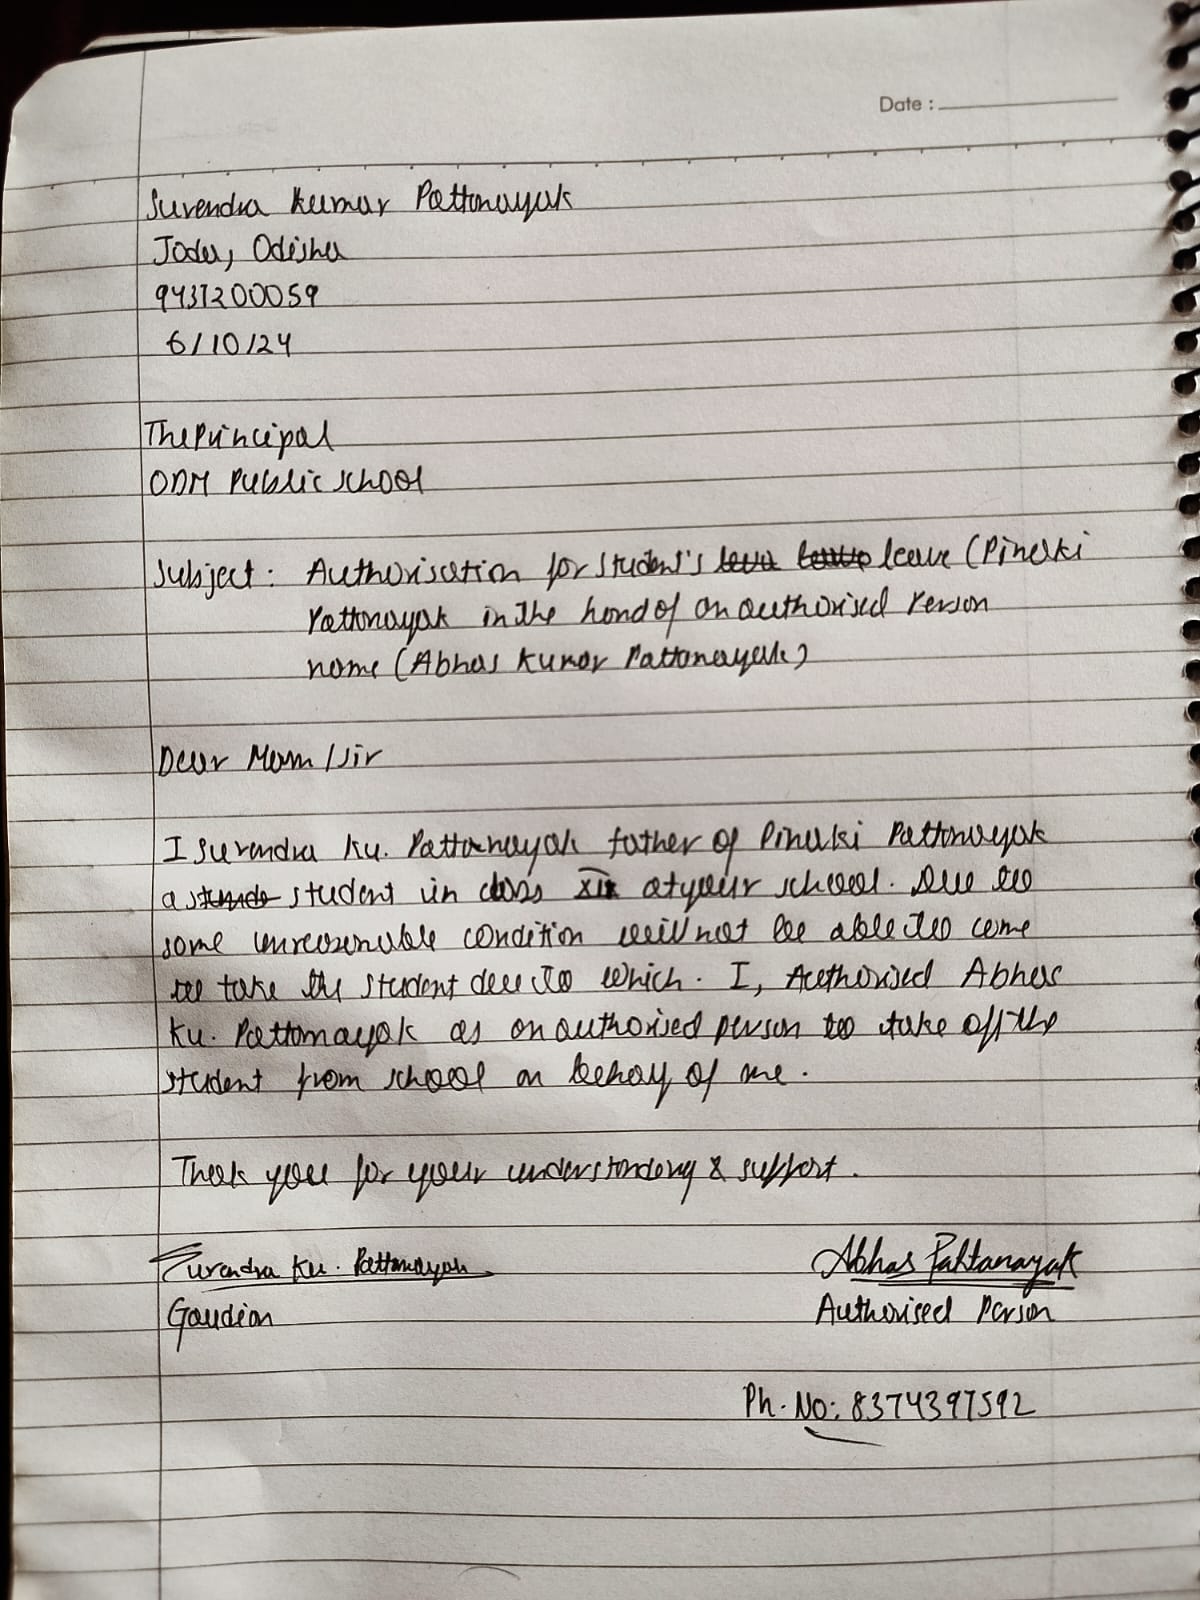 Date :
Surendra Kumar Pattanayak
Joda, Odisha
9437200059
6/10/24
The Principal
ODM Public School
Subject: Authorisation for Student's leave (Pinaki
Pattanayak in the hand of an authorised Person
name (Abhas Kumar Pattanayak)
Dear Mam/Sir
I Surendra Ku. Pattanayak father of Pinaki Pattanayak
a student in class XII at your school. Due to
some unreasonable condition will not be able to come
to take the student due to which. I, Authorised Abhas
Ku. Pattanayak as an authorised person to take off the
student from school on behay of me.
Thank you for your understanding & support.
Surendra Ku. Pattanayak
Gaudian
Abhas Pattanayak
Authorised Person
Ph. No: 8374397592